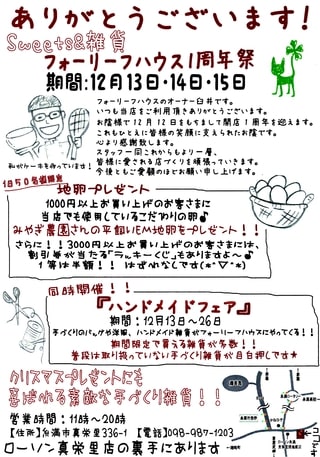 ありがとうございます!
Sweets&雑貨
フォーリーフハウス1周年祭
期間:12月13日・14日・15日
フォーリーフハウスのオーナー臼井です。
いつも当店をご利用頂きありがとうございます。
お陰様で12月12日をもちまして開店1周年を迎えます。
これもひとえに皆様の笑顔に支えられたお陰です。
心より感謝致します。
スタッフ一同これからもより一層、
皆様に愛される店づくりを頑張っていきます。
今後ともご愛顧のほどお願い申し上げます。
私がケーキを作っています!
1日50名様限定
地卵プレゼント
1000円以上お買い上げのお客さまに
当店でも使用しているこだわりの卵♪
みやぎ農園さんの平飼いEM地卵をプレゼント!!
さらに!!3000円以上お買い上げのお客さまには、
割引券が当たる『ラッキーくじ』もありますよ~♪
1等は半額!! はずれなしです(*°▽°*)
同時開催!!
『ハンドメイドフェア』
期間:12月13日~26日
手づくりのバッグや洋服、ハンドメイド雑貨がフォーリーフハウスにやってくる!!
期間限定で買える雑貨が多数!!
普段は取り扱っていない手づくり雑貨が目白押しです★
クリスマスプレゼントにも
喜ばれる素敵な手づくり雑貨!!
営業時間:11時~20時
【住所】糸満市真栄里336-1 【電話】098-987-1203
ローソン真栄里店の裏手にあります